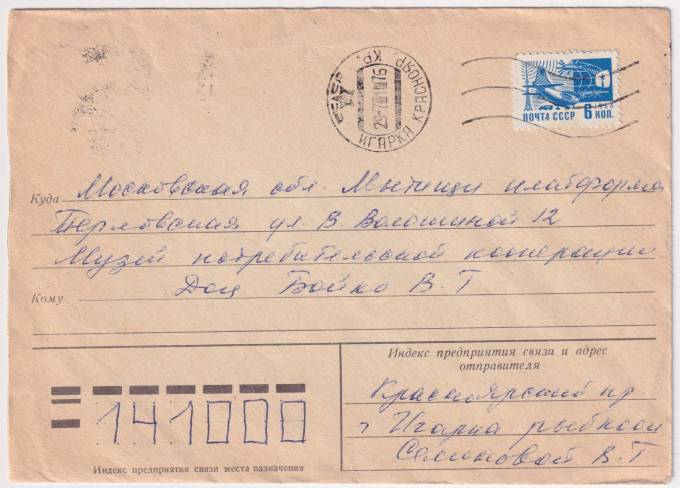 ИГАРКА КРАСНОЯР. КР.
ПОЧТА СССР 6 КОП.
Куда Московская обл. Мытищи платформа
Перловская ул. В. Волошиной 12
Музей потребительской кооперации
Кому Доц. Бойко В. Т
Индекс предприятия связи и адрес
отправителя
Красноярский кр.
г Игарка рыбкооп
Семиновой В. Т
141000
Индекс предприятия связи места назначения